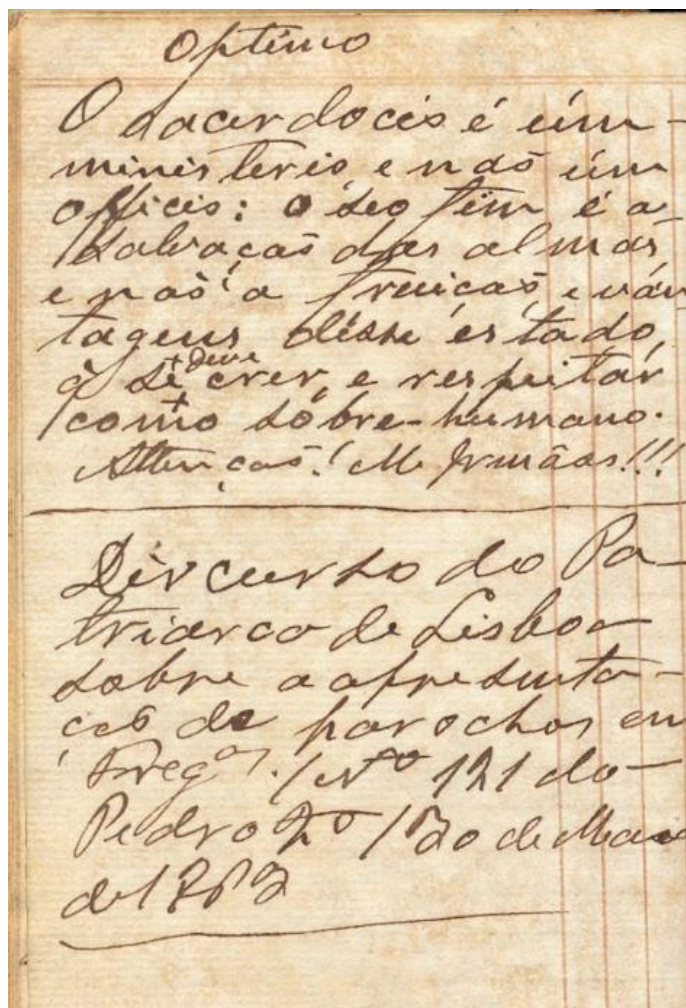 Optimo
O sacerdocio é úm
ministerio, e não úm
officio: o seo fim é a
salvação das almas,
e não a fruição, e ván-
tagens désse éstado,
q̀ sé + deve crer, e respeitár
como sóbre-humano.
Attenção! M. Irmãos!!!
Discurso do Pa-
triarca de Lisboa
sobre a apresenta-
ção de parochos en
Freg.as. / Nº 121 do
Pedro 2º / 30 de Maio
de